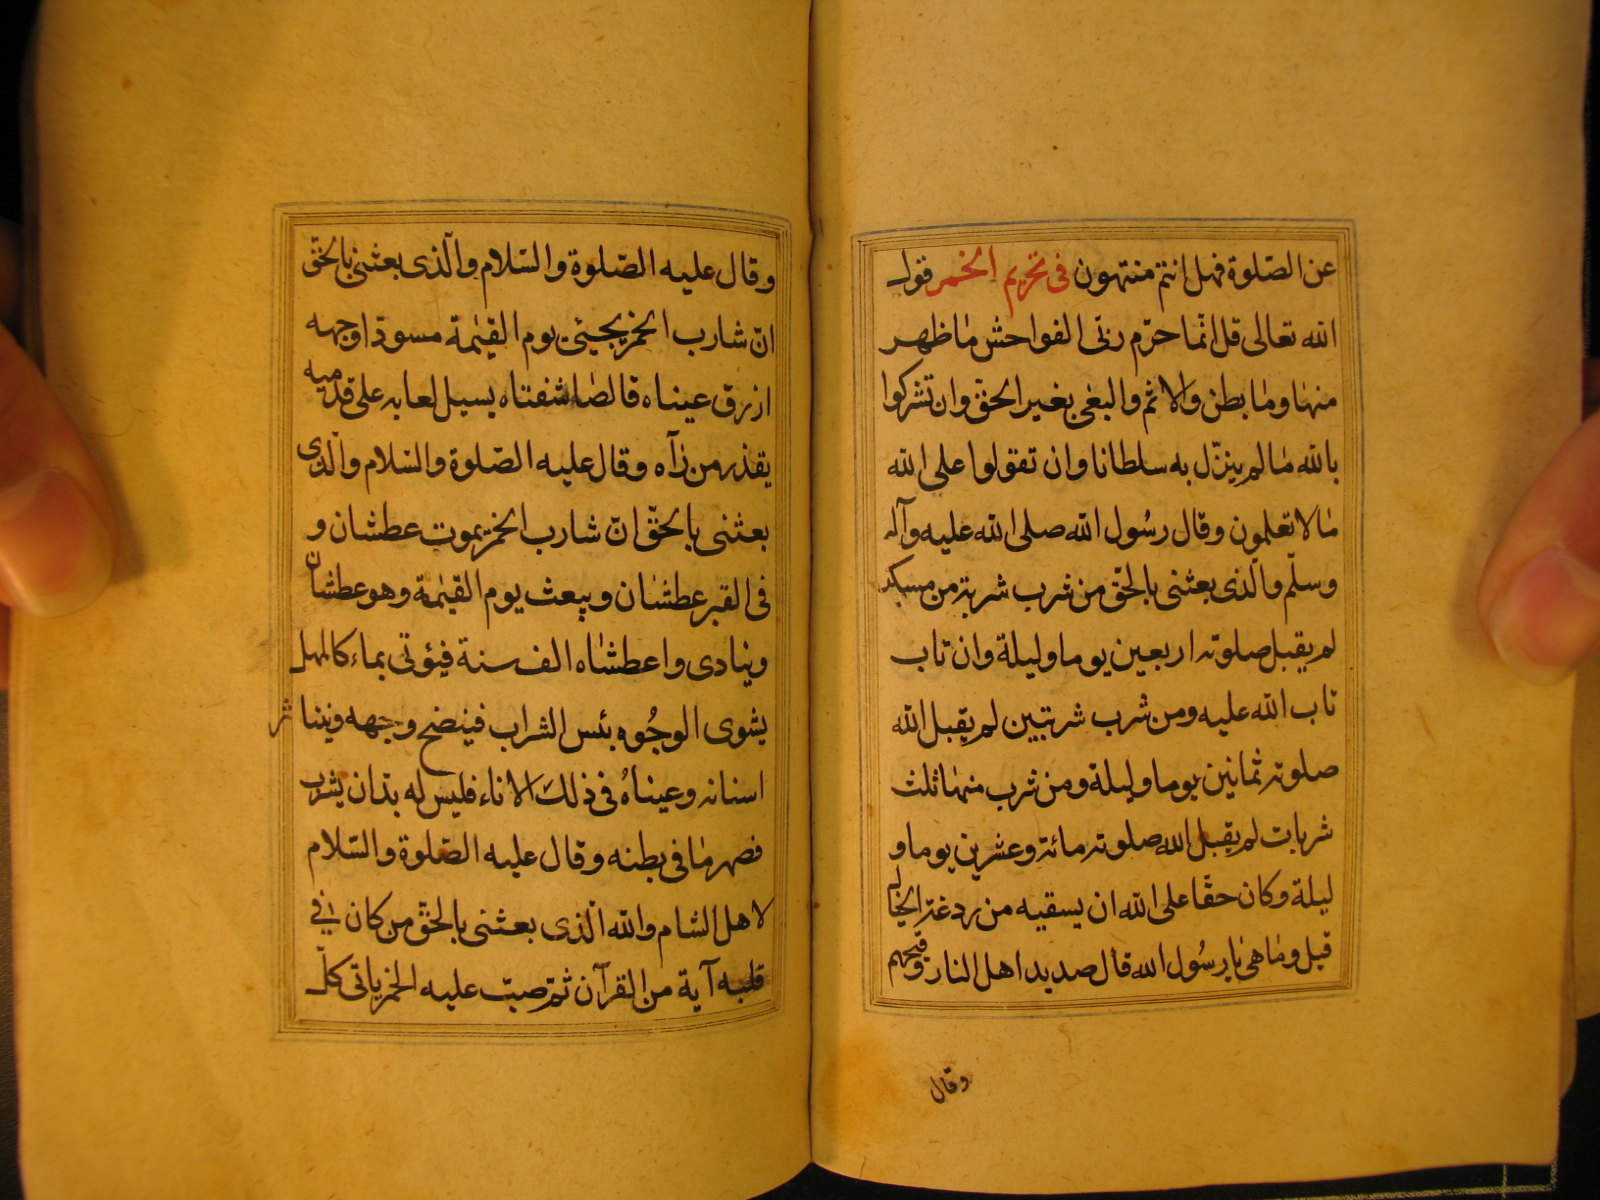 عن الصّلوة فهل انتم منتهون فى تحريم الخمر قول
الله تعالى قل انّما حرّم ربّى الفواحش ما ظهر
منها وما بطن والاثم والبغى بغير الحقّ وان تشركوا
بالله ما لم ينزّل به سلطانا وان تقولوا على الله
ما لا تعلمون وقال رسُول الله صلى الله عليه وآله
وسلّم والّذى بعثنى بالحقّ من شرب شربة من مسكر
لم يقبل صلوته اربعين يوما وليلة وان تاب
تاب الله عليه ومن شرب شربتين لم يقبل الله
صلوته ثمانين يوما وليلة ومن شرب منها ثلث
شربات لم يقبل الله صلوته مائة وعشرين يوما و
ليلة وكان حقّا على الله ان يسقيه من ردغة الخبال
قيل وما هى يا رسُول الله قال صديد اهل النار وقيحهم
وقال
وقال عليه الصّلوة والسّلام والّذى بعثنى بالحقّ
انّ شارب الخمر يجيئ يوم القيٰمة مسودّا وجهه
ازرق عيناه قالصا شفتاه يسيل لعابه على قدميه
يقذر من رآه وقال عليه الصّلوة والسّلام والّذى
بعثنى بالحقّ انّ شارب الخمر يموت عطشان و
فى القبر عطشان ويبعث يوم القيٰمة وهو عطشان
وينادى واعطشاه الف سنة فيؤتى بماء كالمهل
يشوى الوجُوه بئس الشراب فينضج وجهه ويتناثر
اسنانه وعيناهُ فى ذلك الاناء فليس له بدّ ان يشرب
فصهر ما فى بطنه وقال عليه الصّلوة والسّلام
لاهل الشام والله الّذى بعثنى بالحقّ من كان فى
قلبه آية من القرآن ثمّ صبّ عليه الخمر ياتى كلّ